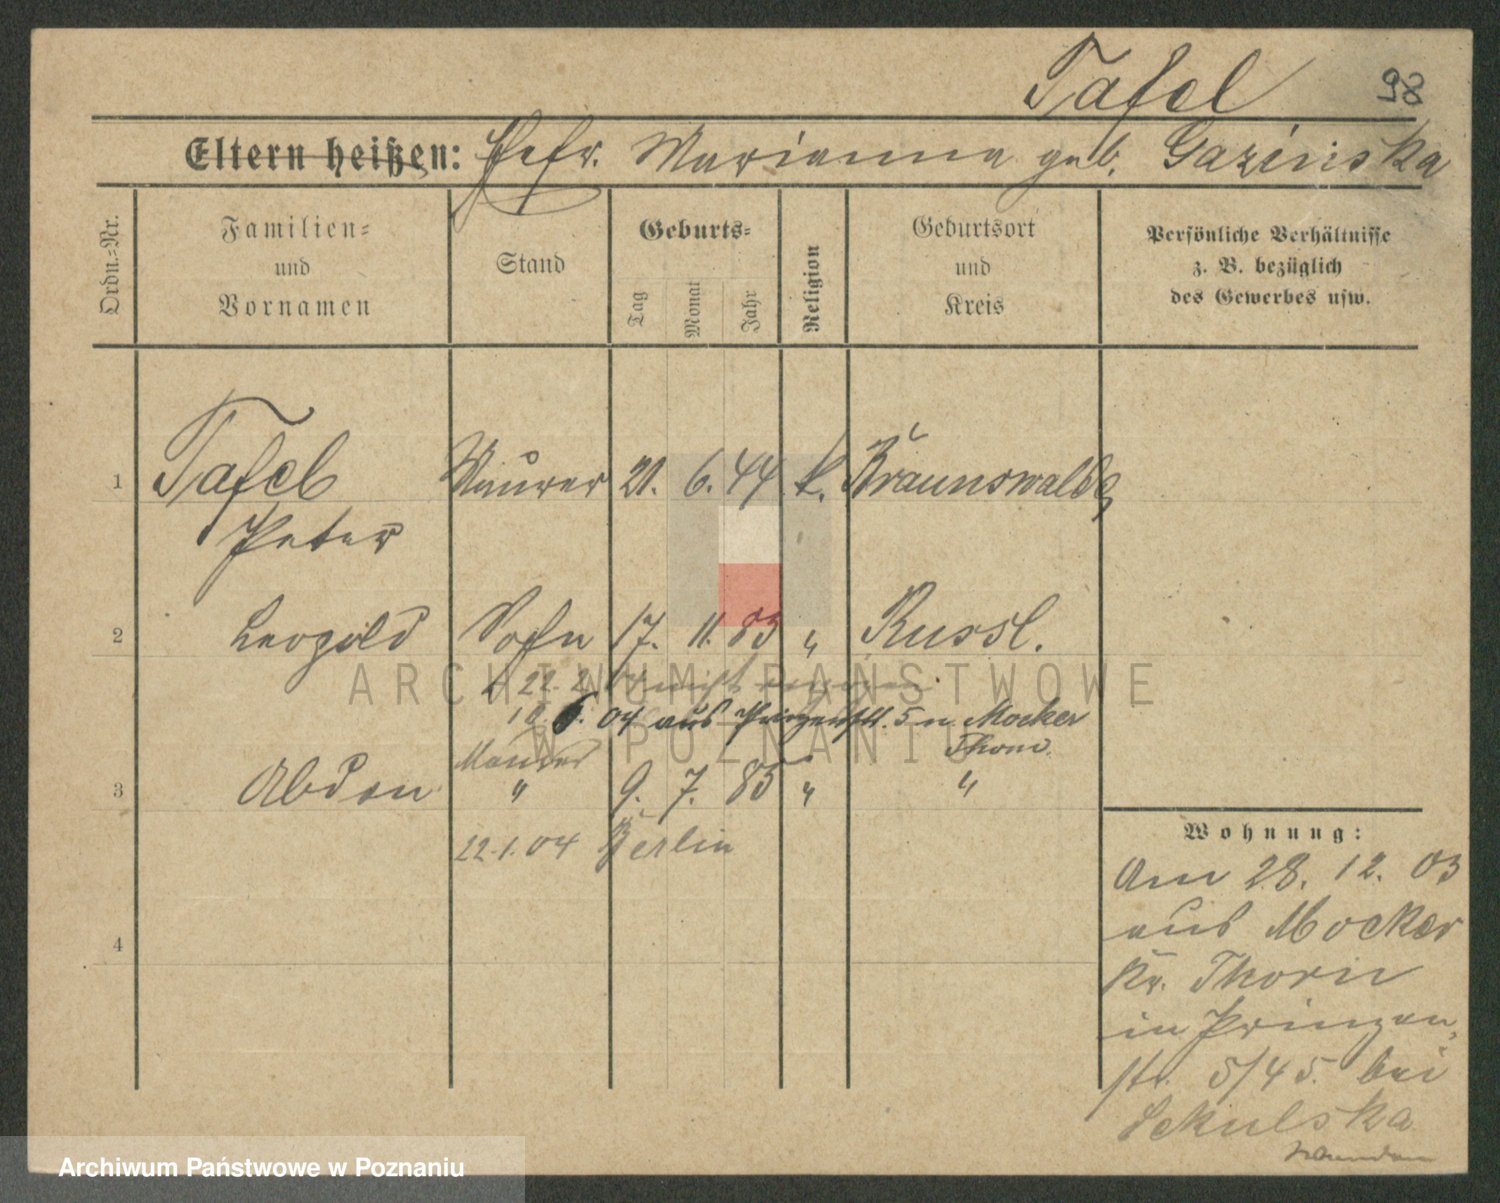 Tafel 98
Eltern heißen: Ehefr. Marianna geb. Gazinska
Ordn.-Nr.
Familien-
und
Vornamen
Stand
Geburts-
Tag
Monat
Jahr
Religion
Geburtsort
und
Kreis
Persönliche Verhältnisse
z. B. bezüglich
des Gewerbes usw.
1 Tafel Maurer 21. 6. 44 k. Braunswalde
Peter
2 Leopold Sohn 17. 11. 83 " Russl.
22. 2.
18. 6. 04 aus Prinzenstr. 5 n. Mocker
Thorn
Maurer
3 Abdon " 9. 7. 85 " "
22.1.04 Berlin
4
Wohnung:
Am 28. 12. 03
aus Mocker
Kr. Thorn
in Prinzen-
str. 5/45. bei
Sekulska
ARCHIWUM PAŃSTWOWE
W POZNANIU
Archiwum Państwowe w Poznaniu